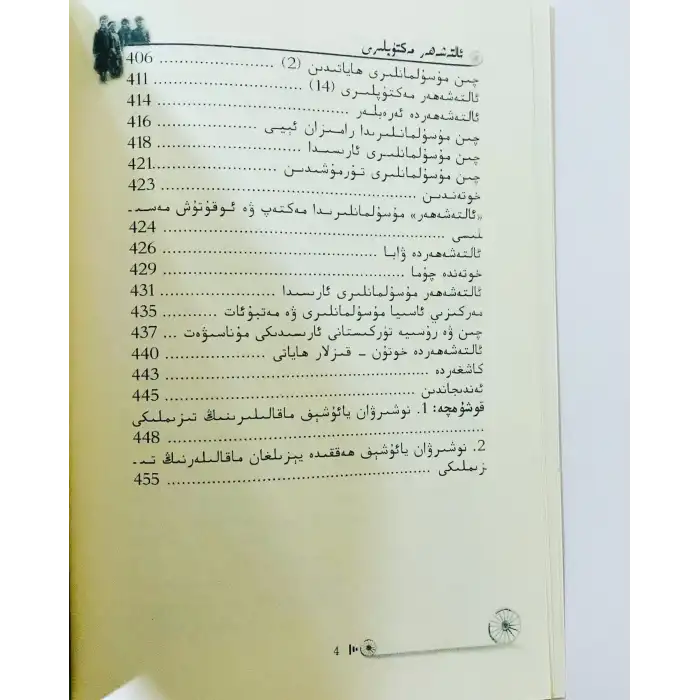 ئالتەشەھەر مەكتۇپلىرى
چىن مۇسۇلمانلىرى ھاياتىدىن (2) ........ 406
ئالتەشەھەر مەكتۇپلىرى (14) ........ 411
ئالتەشەھەردە ئەرەبلەر ........ 414
چىن مۇسۇلمانلىرىدا رامىزان ئېيى ........ 416
چىن مۇسۇلمانلىرى ئارىسىدا ........ 418
چىن مۇسۇلمانلىرى تۇرمۇشىدىن ........ 421
خوتەندىن ........ 423
«ئالتەشەھەر» مۇسۇلمانلىرىدا مەكتەپ ۋە ئوقۇتۇش مەسى-
لىسى ........ 424
ئالتەشەھەردە ۋابا ........ 426
خوتەندە چۇما ........ 429
ئالتەشەھەر مۇسۇلمانلىرى ئارىسىدا ........ 431
مەركىزىي ئاسىيا مۇسۇلمانلىرى ۋە مەتبۇئات ........ 435
چىن ۋە رۇسىيە تۈركىستانى ئارىسىدىكى مۇناسىۋەت ... 437
ئالتەشەھەردە خوتۇن - قىزلار ھاياتى ........ 440
كاشغەردە ........ 443
ئەندىجاندىن ........ 445
قوشۇمچە: 1. نوشىرۋان يائۇشېف ماقالىلىرىنىڭ تىزىملىكى
........ 448
2. نوشىرۋان يائۇشېف ھەققىدە يېزىلغان ماقالىلەرنىڭ تى-
زىملىكى ........ 455
4